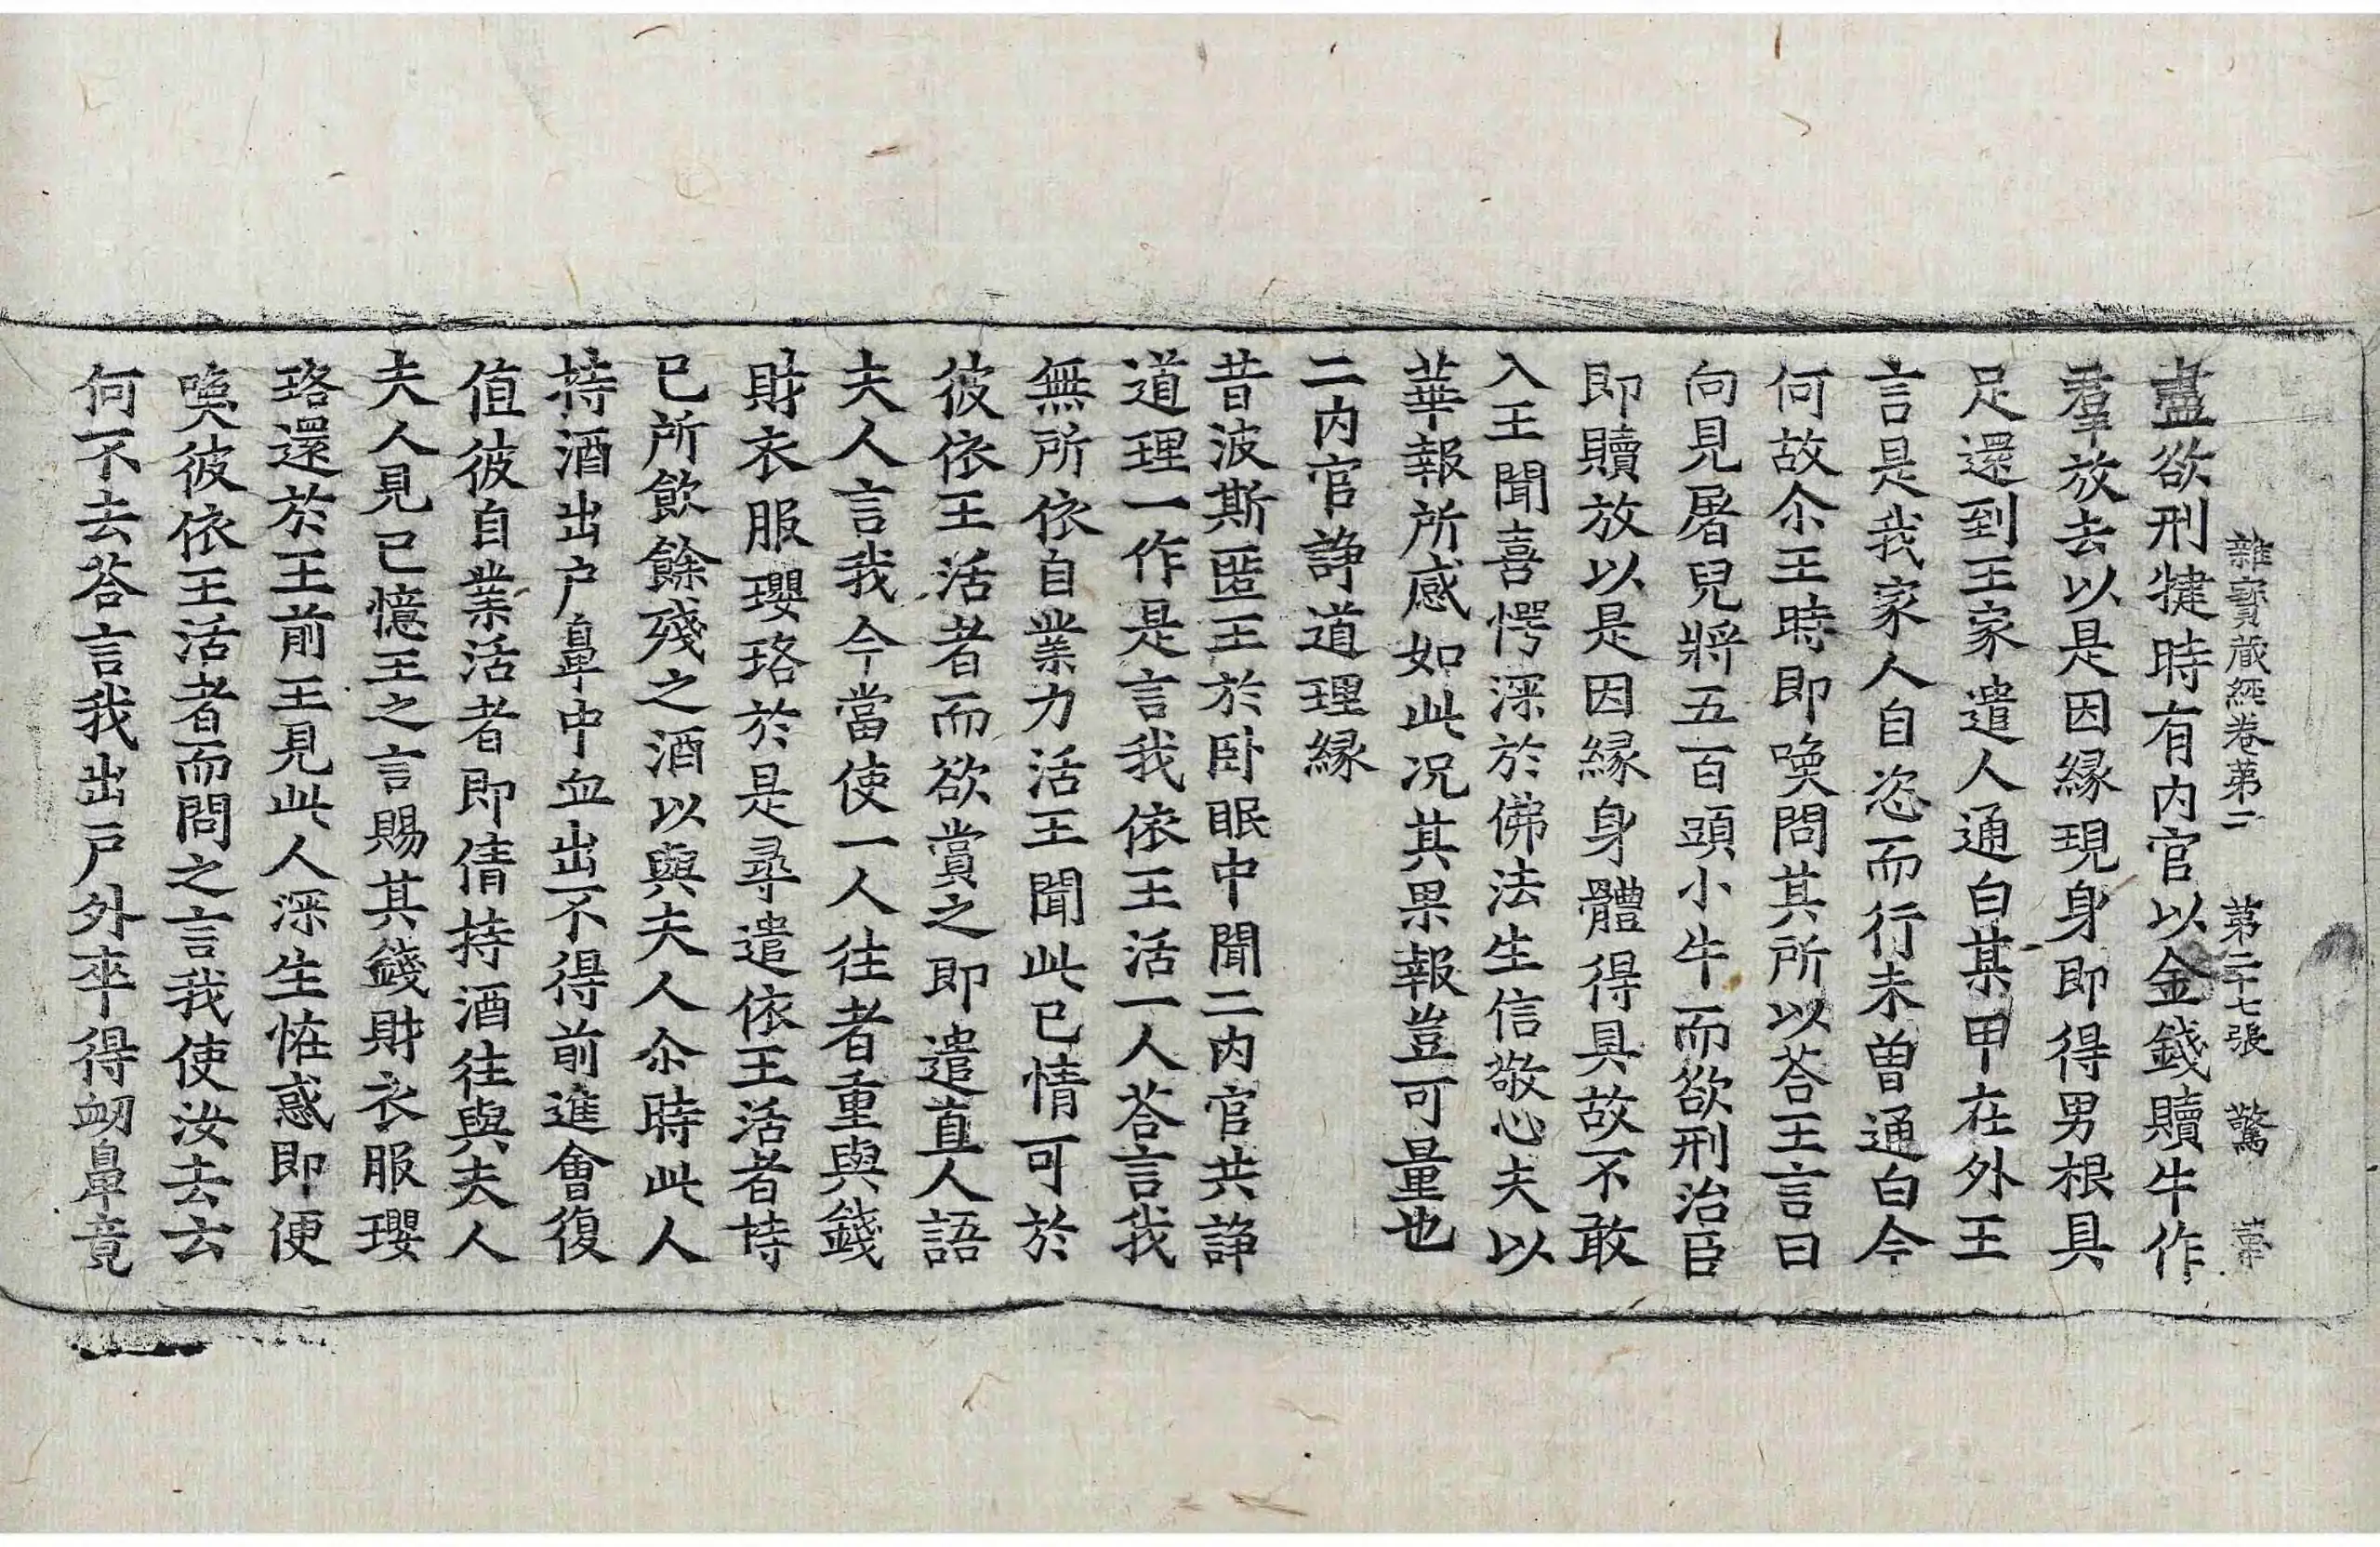 雜寶藏經卷第二 第二十七張 驚
盡欲刑犍時有内官以金錢贖牛作
羣放去以是因緣現身即得男根具
足還到王家遣人通白某甲在外王
言是我家人自恣而行未曽通白今
何故尒王時即喚問其所以荅王言曰
向見屠兒將五百頭小牛而欲刑治臣
即贖放以是因緣身體得具故不敢
入王聞喜愕深於佛法生信敬心夫以
華報所感如此况其果報豈可量也
二内官諍道理緣
昔波斯匿王於卧眠中聞二内官共諍
道理一作是言我依王活一人荅言我
無所依自業力活王聞此已情可於
彼依王活者而欲賞之即遣直人語
夫人言我今當使一人往者重與錢
財衣服瓔珞於是尋遣依王活者持
已所飲餘殘之酒以與夫人尒時此人
持酒出户鼻中血出不得前進會復
值彼自業活者即倩持酒往與夫人
夫人見已憶王之言賜其錢財衣服瓔
珞還於王前王見此人深生恠惑即便
喚彼依王活者而問之言我使汝去去
何不去荅言我出戸外卒得衂鼻竟